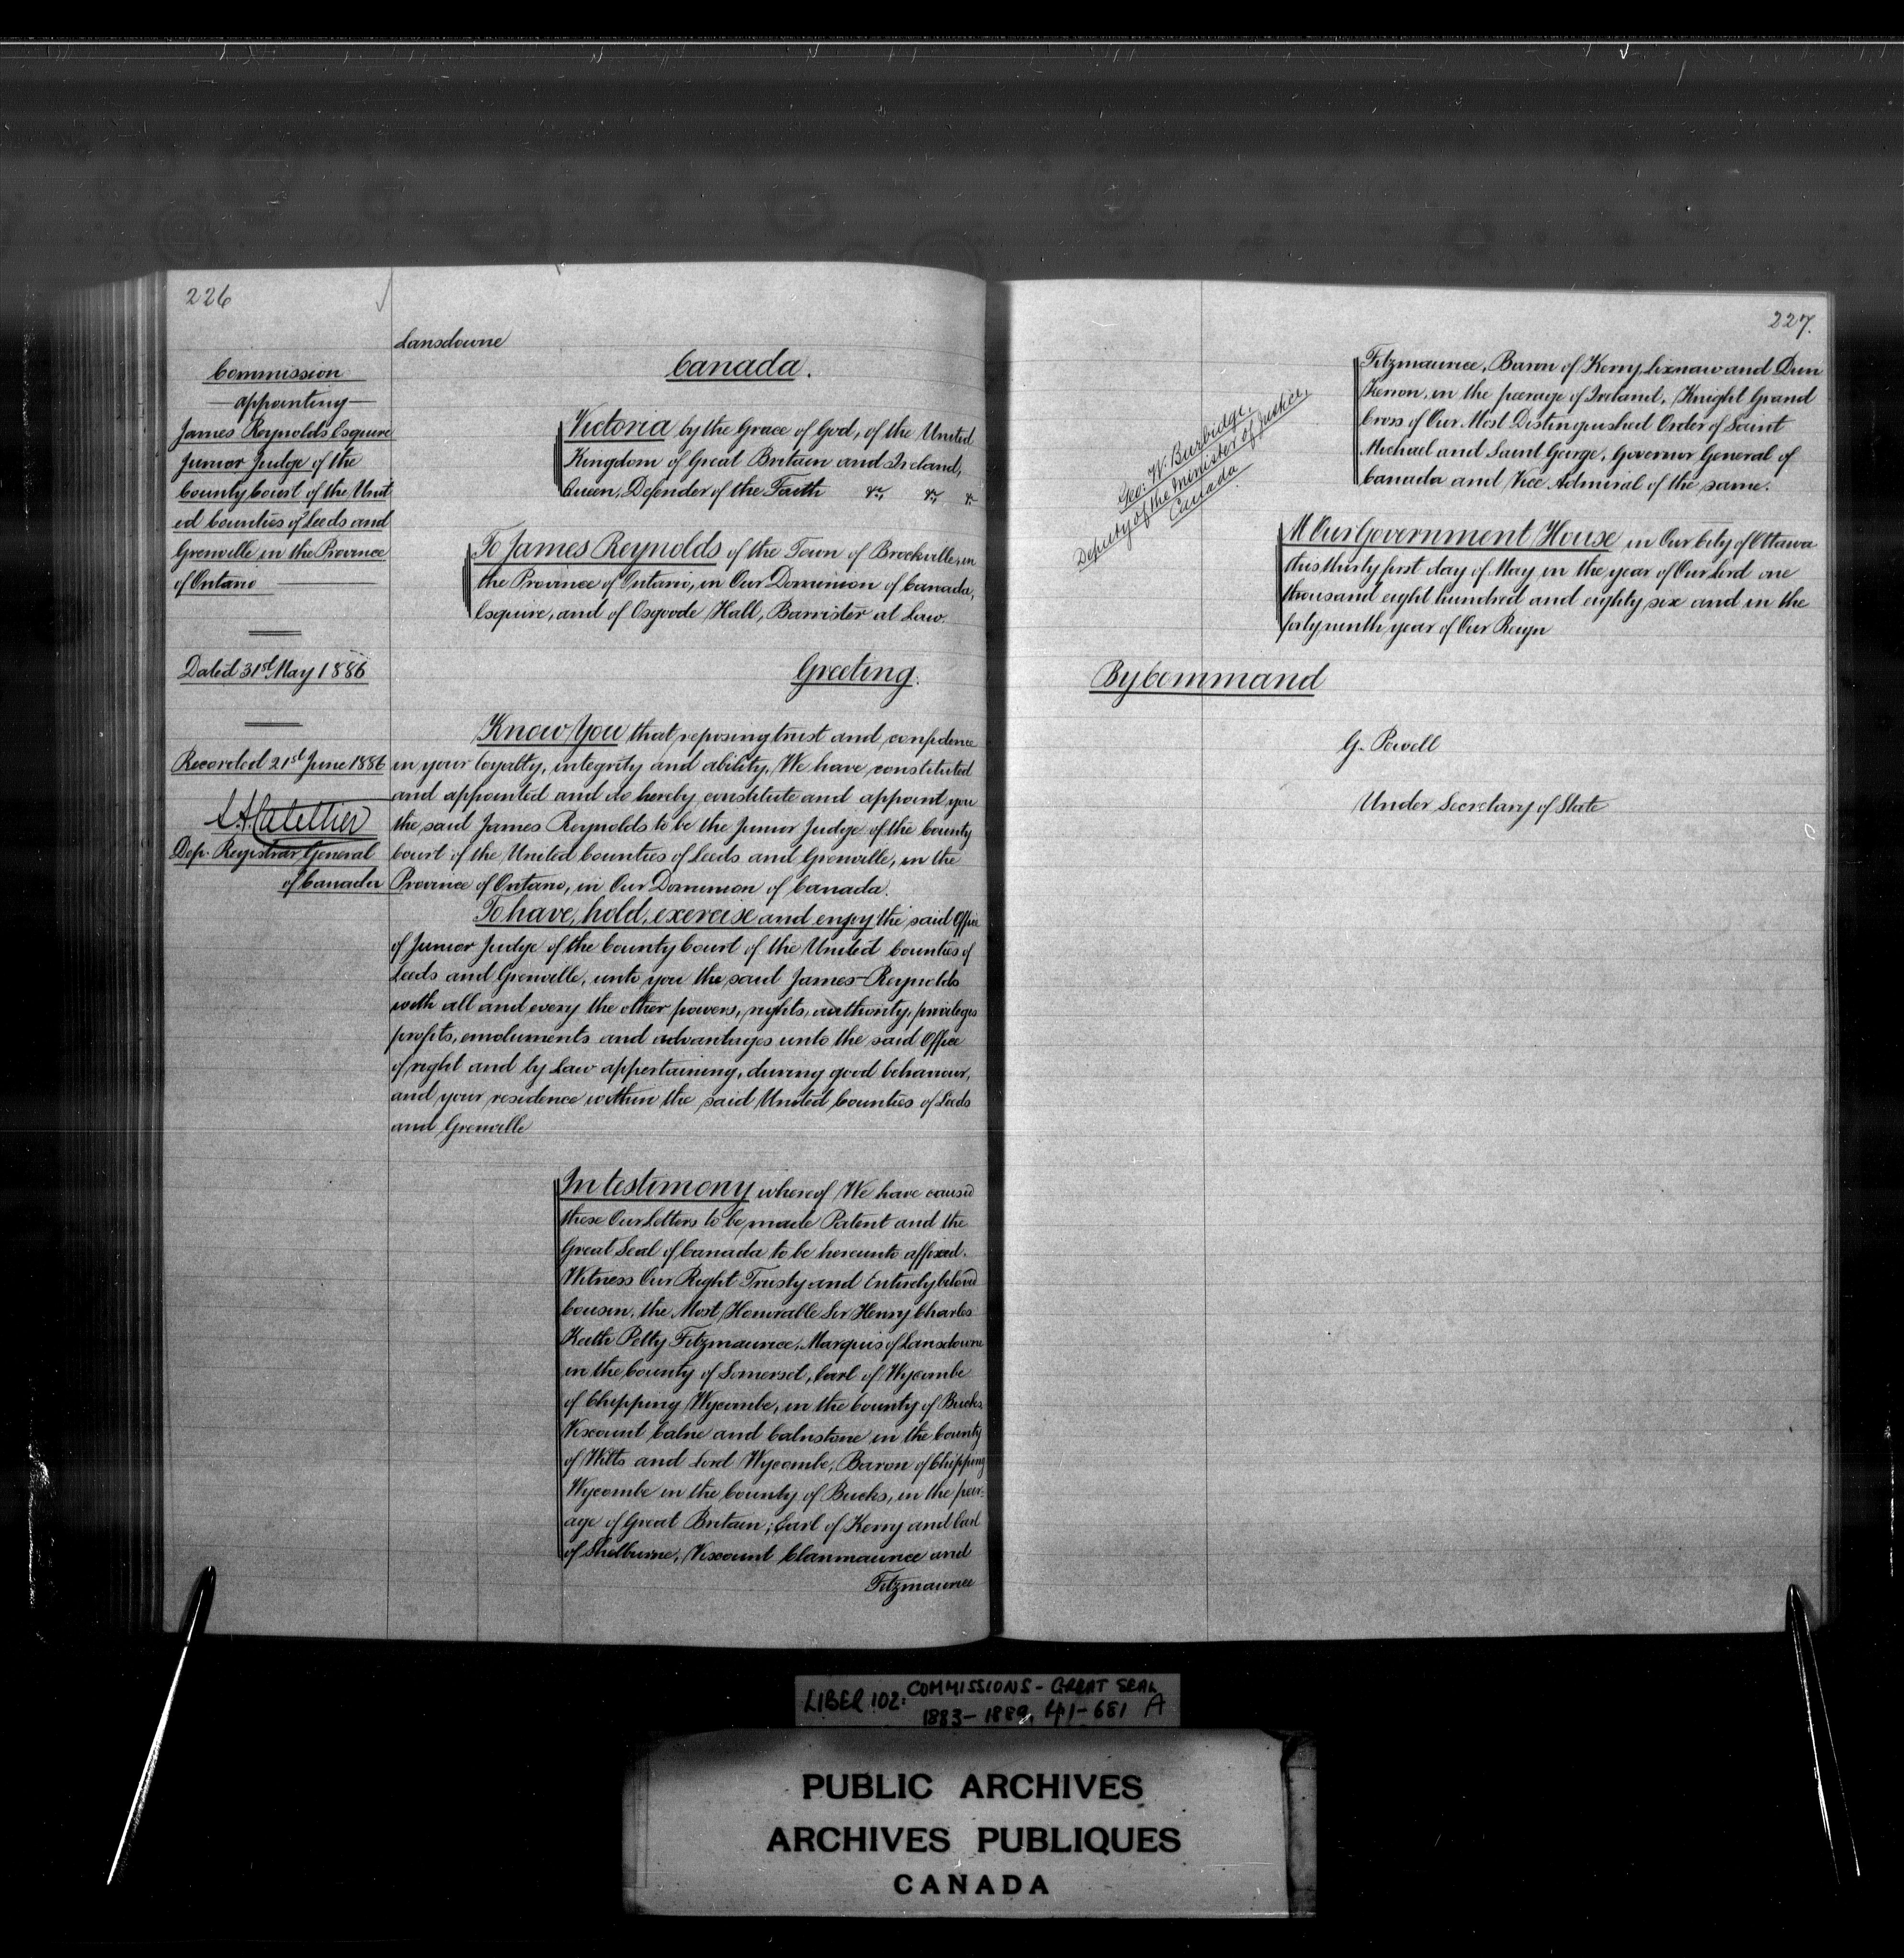 226
Lansdowne
Commission
appointing
James Reynolds Esquire
Junior Judge of the
County Court of the Unit
ed Counties of Leeds and
Grenville in the Province
of Ontario
Dated 31st May 1886
Recorded 21st June 1886
L.A. Catellier
Dep. Registrar General
of Canada
Canada.
Victoria by the Grace of God, of the United
Kingdom of Great Britain and Ireland,
Queen, Defender of the Faith &c, &c, &c
To James Reynolds of the Town of Brockville, in
the Province of Ontario, in Our Dominion of Canada,
Esquire, and of Osgoode Hall, Barrister at Law.
Greeting.
Know You that reposing trust and confidence
in your loyalty, integrity and ability, We have constituted
and appointed and do hereby constitute and appoint you
the said James Reynolds to be the Junior Judge of the County
Court of the United Counties of Leeds and Grenville, in the
Province of Ontario, in Our Dominion of Canada.
To have, hold, exercise and enjoy the said Office
of Junior Judge of the County Court of the United Counties of
Leeds and Grenville, unto you the said James Reynolds
with all and every the other powers, rights, authority, privileges
profits, emoluments and advantages unto the said Office
of right and by Law appertaining, during good behaviour,
and your residence within the said United Counties of Leeds
and Grenville
In testimony whereof We have caused
these Our Letters to be made Patent and the
Great Seal of Canada to be hereunto affixed.
Witness Our Right Trusty and Entirely beloved
Cousin, the Most Honorable Sir Henry Charles
Keith Petty Fitzmaurice, Marquis of Lansdowne
in the County of Somerset, Earl of Wycombe
of Chipping Wycombe, in the County of Bucks
Viscount Calne and Calnstone in the County
of Wilts and Lord Wycombe, Baron of Chipping
Wycombe in the County of Bucks, in the peer-
age of Great Britain; Earl of Kerry and Earl
of Shelburne, Viscount Clanmaurice and
Fitzmaurice
227.
Fitzmaurice, Baron of Kerry, Lixnaw and Dun
Kerron, in the peerage of Ireland, Knight Grand
Cross of Our Most Distinguished Order of Saint
Michael and Saint George, Governor General of
Canada and Vice Admiral of the same.
Geo: W. Burbidge,
Deputy of the Minister of Justice,
Canada
At Our Government House in Our City of Ottawa
this thirty first day of May in the year of Our Lord one
thousand eight hundred and eighty six and in the
forty ninth year of Our Reign
By Command
G. Powell
Under Secretary of State
LIBER 102: COMMISSIONS - GREAT SEAL
1883-1889, pp 1-681 A
PUBLIC ARCHIVES
ARCHIVES PUBLIQUES
CANADA